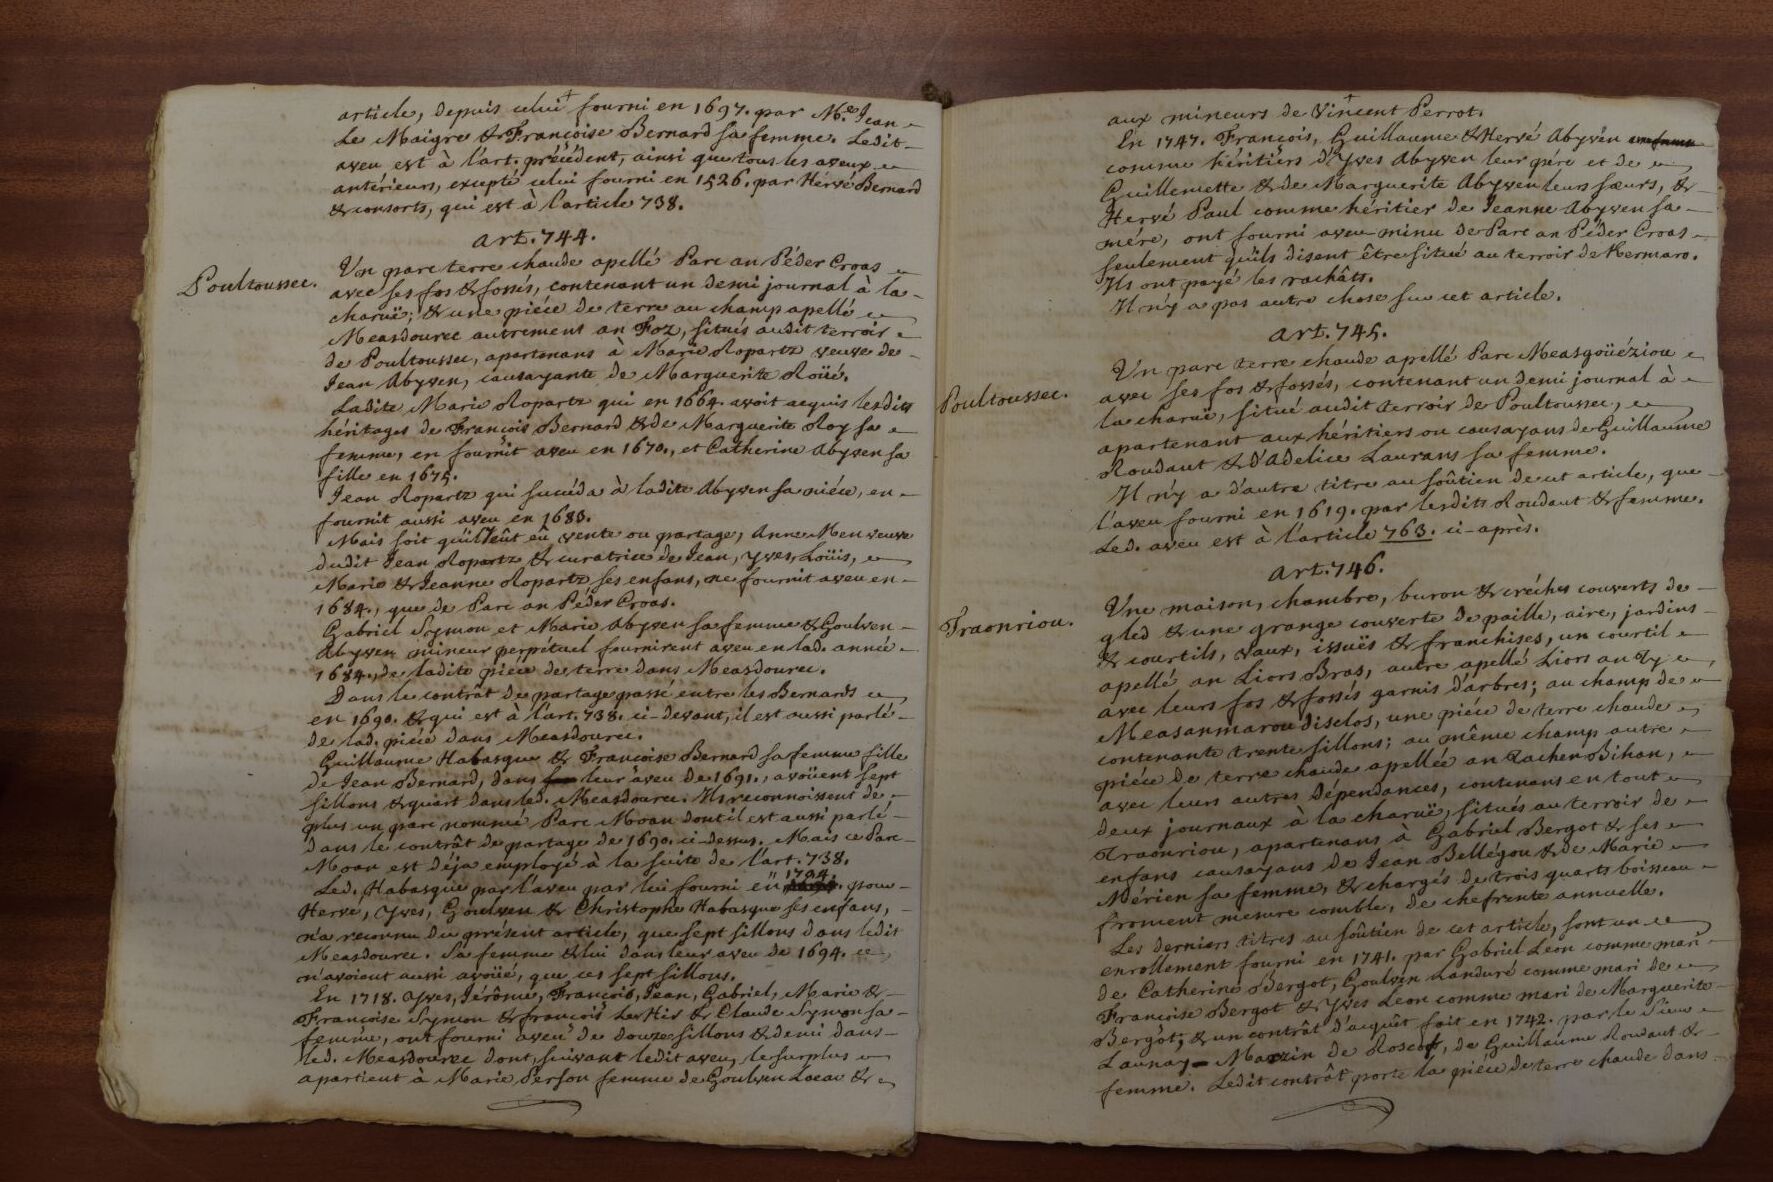 article, depuis celui fourni en 1697. par Me. Jean
Le Maigre & Françoise Bernard sa femme. Ledit
aveu est à l'art. précédent, ainsi que tous les aveux
antérieurs, excepté celui fourni en 1526. par Hervé Bernard
& consorts, qui est à l'article 738.
Art. 744.
Poultoussec.
Un parc terre chaude apellé Parc an Péder Croas
avec ses fos & fossés, contenant un demi journal à la
charuë; & une piéce de terre au champ apellé
Measdourec autrement an Foz, situés audit terroir
de Poultoussec, apartenans à Marie Ropartz veuve de
Jean Abyven, causayante de Marguerite Roüé.
Ladite Marie Ropartz qui en 1664. avoit acquis lesdits
héritages de François Bernard & de Marguerite Roy sa
femme, en fournit aveu en 1670., et Catherine Abyven sa
fille en 1675.
Jean Ropartz qui succéda à ladite Abyven sa niéce, en
fournit aussi aveu en 1683.
Mais soit qu'il y eût eû vente ou partage, Anne Men veuve
dudit Jean Ropartz & curatrice de Jean, Yves, Loüis,
Marie & Jeanne Ropartz ses enfans, ne fournit aveu en
1684., que de Parc an Péder Croas.
Gabriel Symon et Marie Abyven sa femme & Goulven
Abyven mineur perpétuel fournirent aveu en lad. année
1684., de ladite piéce de terre dans Measdourec.
Dans le contrât de partage passé entre les Bernards
en 1690. & qui est à l'art. 738. ci-devant, il est aussi parlé
de lad. piéce dans Measdourec.
Guillaume Habasque & Françoise Bernard sa femme fille
de Jean Bernard, dans leur aveu de 1691., avoüent sept
sillons & quart dans led. Measdourec. Ils reconnoissent de
plus un parc nommé Parc Moan dont il est aussi parlé
dans le contrât de partage de 1690. ci-dessus. Mais ce Parc
Moan est déja employé à la suite de l'art. 738.
Led. Habasque par l'aveu par lui fourni en 1704. pour
Hervé, Yves, Goulven & Christophe Habasque ses enfans,
n'a reconnu du présent article, que sept sillons dans ledit
Measdourec. Sa femme & lui dans leur aveu de 1694.
n'avoient aussi avoüé, que ces sept sillons.
En 1718. Yves, Jérôme, François, Jean, Gabriel, Marie &
Françoise Symon & françois Le Hir & Claude Symon sa
femme, ont fourni aveu de douze sillons & demi dans
led. Measdourec dont, suivant ledit aveu, le surplus
apartient à Marie Person femme de Goulven Loeac &
aux mineurs de Vincent Perrot.
En 1747. François, Guillaume & Hervé Abyven
comme héritiers d'Yves Abyven leur pere et de
Guillemette & de Marguerite Abyven leurs sœurs, &
Hervé Paul comme héritier de Jeanne Abyven sa
mére, ont fourni aveu-minu de Parc an Péder Croas
seulement qu'ils disent être situé au terroir de Kermaro.
Ils ont payé les rachâts.
Il n'y a pas autre chose sur cet article.
Art. 745.
Poultoussec.
Un parc terre chaude apellé Parc Measgoüéziou
avec ses fos & fossés, contenant un demi journal à
la charuë, situé audit terroir de Poultoussec,
apartenant aux héritiers ou causayans de Guillaume
Roudaut & d'Adelice Laurans sa femme.
Il n'y a d'autre titre au soûtien de cet article, que
l'aveu fourni en 1619. par lesdits Roudaut & femme.
Led. aveu est à l'article 763. ci-après.
Art. 746.
Traonriou.
Une maison, chambre, burou & créches couverts de
gled & une grange couverte de paille, aire, jardins
& courtils, vaux, issuës & franchises, un courtil
apellé an Liors Bras, autre apellé Liors an Ty
avec leurs fos & fossés garnis d'arbres; au champ de
Measanmarou disclos, une piéce de terre chaude
contenante trente sillons; au même champ autre
piéce de terre chaude apellée an Dachen Bihan,
avec leurs autres dépendances, contenans en tout
deux journaux à la charuë, situés au terroir de
Traonriou, apartenans à Gabriel Bergot & ses
enfans causayans de Jean Bellégou & de Marie
Mérien sa femme, & chargés de trois quarts boisseau
froment mesure comble, de chefrente annuelle.
Les derniers titres au soûtien de cet article, sont un
enrollement fourni en 1741. par Gabriel Leon comme mari
de Catherine Bergot, Goulven Landuré comme mari de
Françoise Bergot & Yves Leon comme mari de Marguerite
Bergot; & un contrât d'acquêt fait en 1742. par le Sieur
Launay-Mazin de Roscof, de Guillaume Roudaut &
femme. Ledit contrât porte la piéce de terre chaude dans